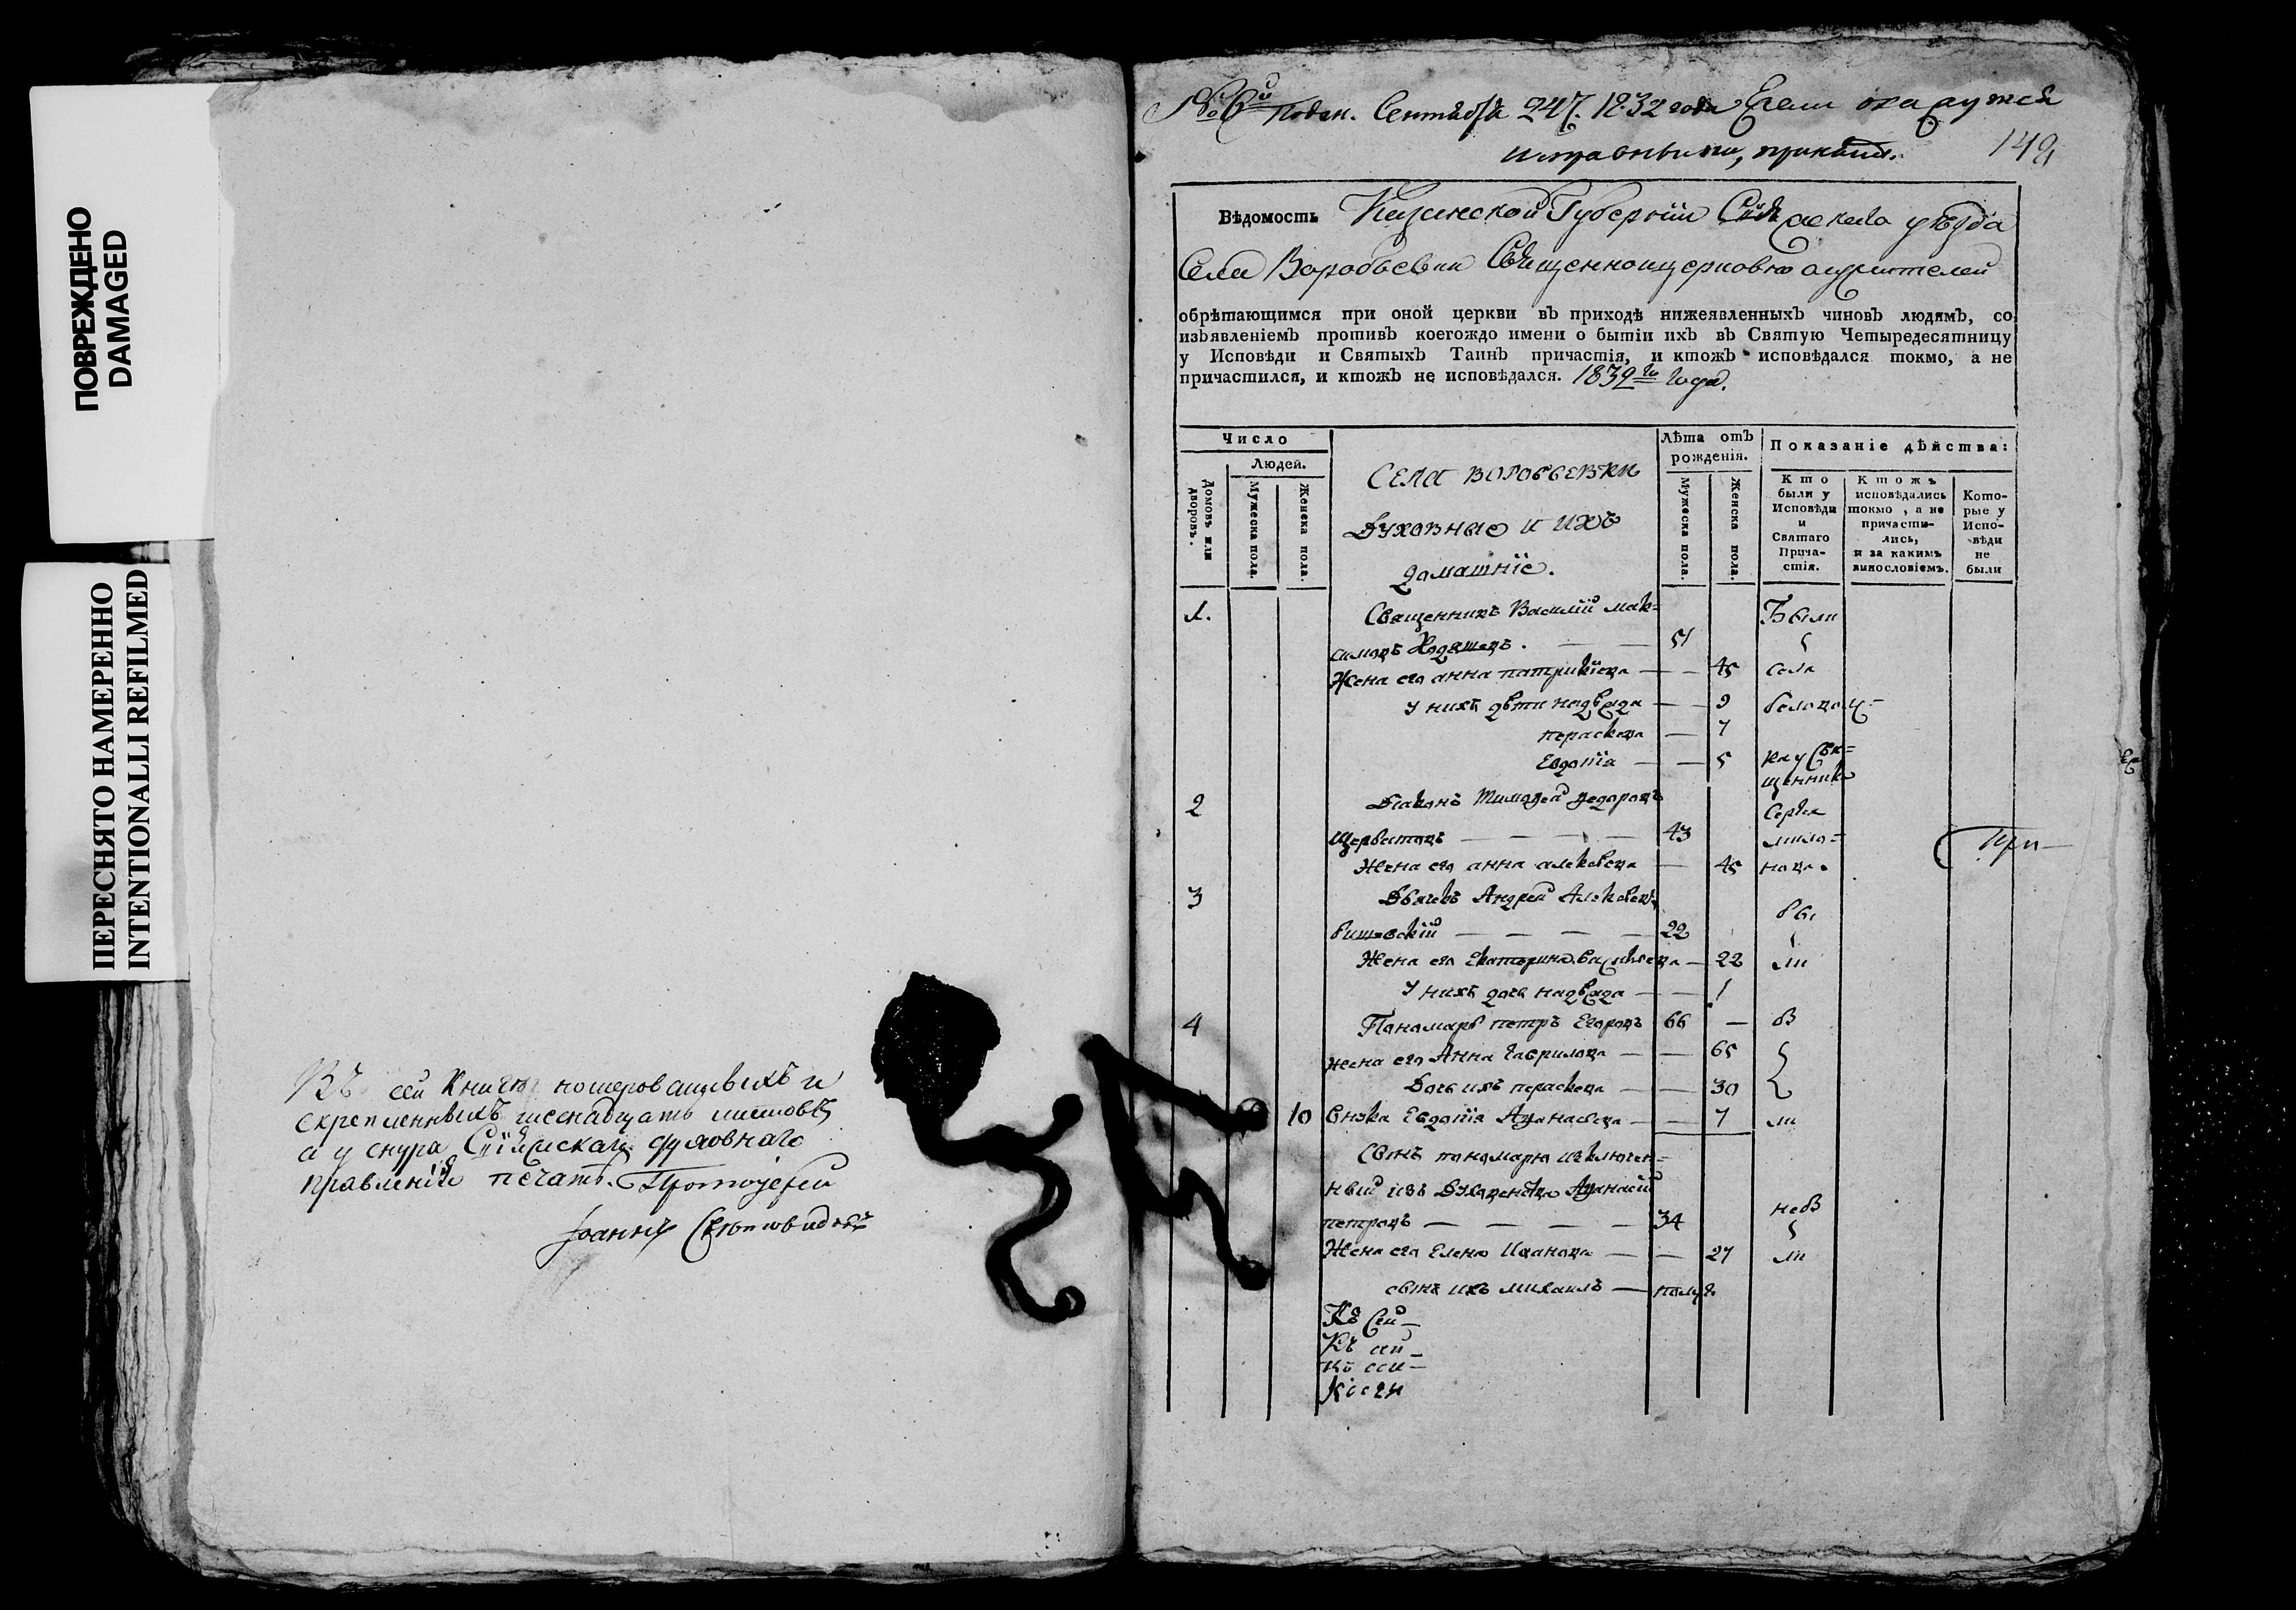 ПОВРЕЖДЕНО
DAMAGED
ПЕРЕСНЯТО НАМЕРЕННО
INTENTIONALLI REFILMED
Въ сей книге номерованныхъ и
скрепленныхъ шеснадцать листовъ,
а у снура духовнаго
правленія печать. Протоіерей
Іоаннъ
Подан. Сентября 24 1832 года Если окажутся
исправными, принять.
149
Вѣдомость Казанской Губерніи уѣзда
Села Воробьевки Священноцерковно служителей
обрѣтающимся при оной церкви въ приходѣ нижеявленныхъ чиновъ людямъ, со
изъявленіемъ противъ коегождо имени о бытіи ихъ въ Святую Четыредесятницу
у Исповѣди и Святыхъ Таинъ причастія, и ктожъ исповѣдался токмо, а не
причастился, и ктожъ не исповѣдался. 1832 го года.
Число
Людей.
Домовъ или дворовъ.
Мужеска пола.
Женска пола.
Села Воробьевки
Духовные и ихъ
домашніе.
Лѣта отъ рожденія.
Мужеска пола.
Женска пола.
Показаніе дѣйства:
Кто были у Исповѣди и Святаго Причастія.
Ктожъ исповѣдались токмо, а не причастились, и за какимъ винословіемъ.
Которые у Исповѣди не были
1. Священникъ Василій Мак= Были
симовъ . — 51
Жена его Анна Патрикіева — 45 села
У нихъ дѣти Надѣжда — 9
Параскева — 7
Евдокіа — 5 ки у Свя=
щенника
2 Діаконъ Тимофей Федоровъ Сергія
Щербатовъ — 43 мило=
Жена его Анна Алексѣева — 45 нова.
3 Дьячекъ Андрей Алексѣевъ бы
22
Жена его Екатерина Васильева — 22 ли
У нихъ дочь Надѣжда — 1
4 Пономарь Петръ Егоровъ 66 — б
Жена его Анна Гаврилова — 65
Дочь ихъ Параскева — 30
10 Внука Евдокіа Афанасьева — 7 ли
Сынъ пономаря изключен=
ный изъ Духовенства Афанасій
Петровъ — 34 не б
Жена его Елена Иванова — 27 ли
сынъ ихъ Михаилъ — полуг.
Къ Сей —
Къ сей —
Къ сей —
При—